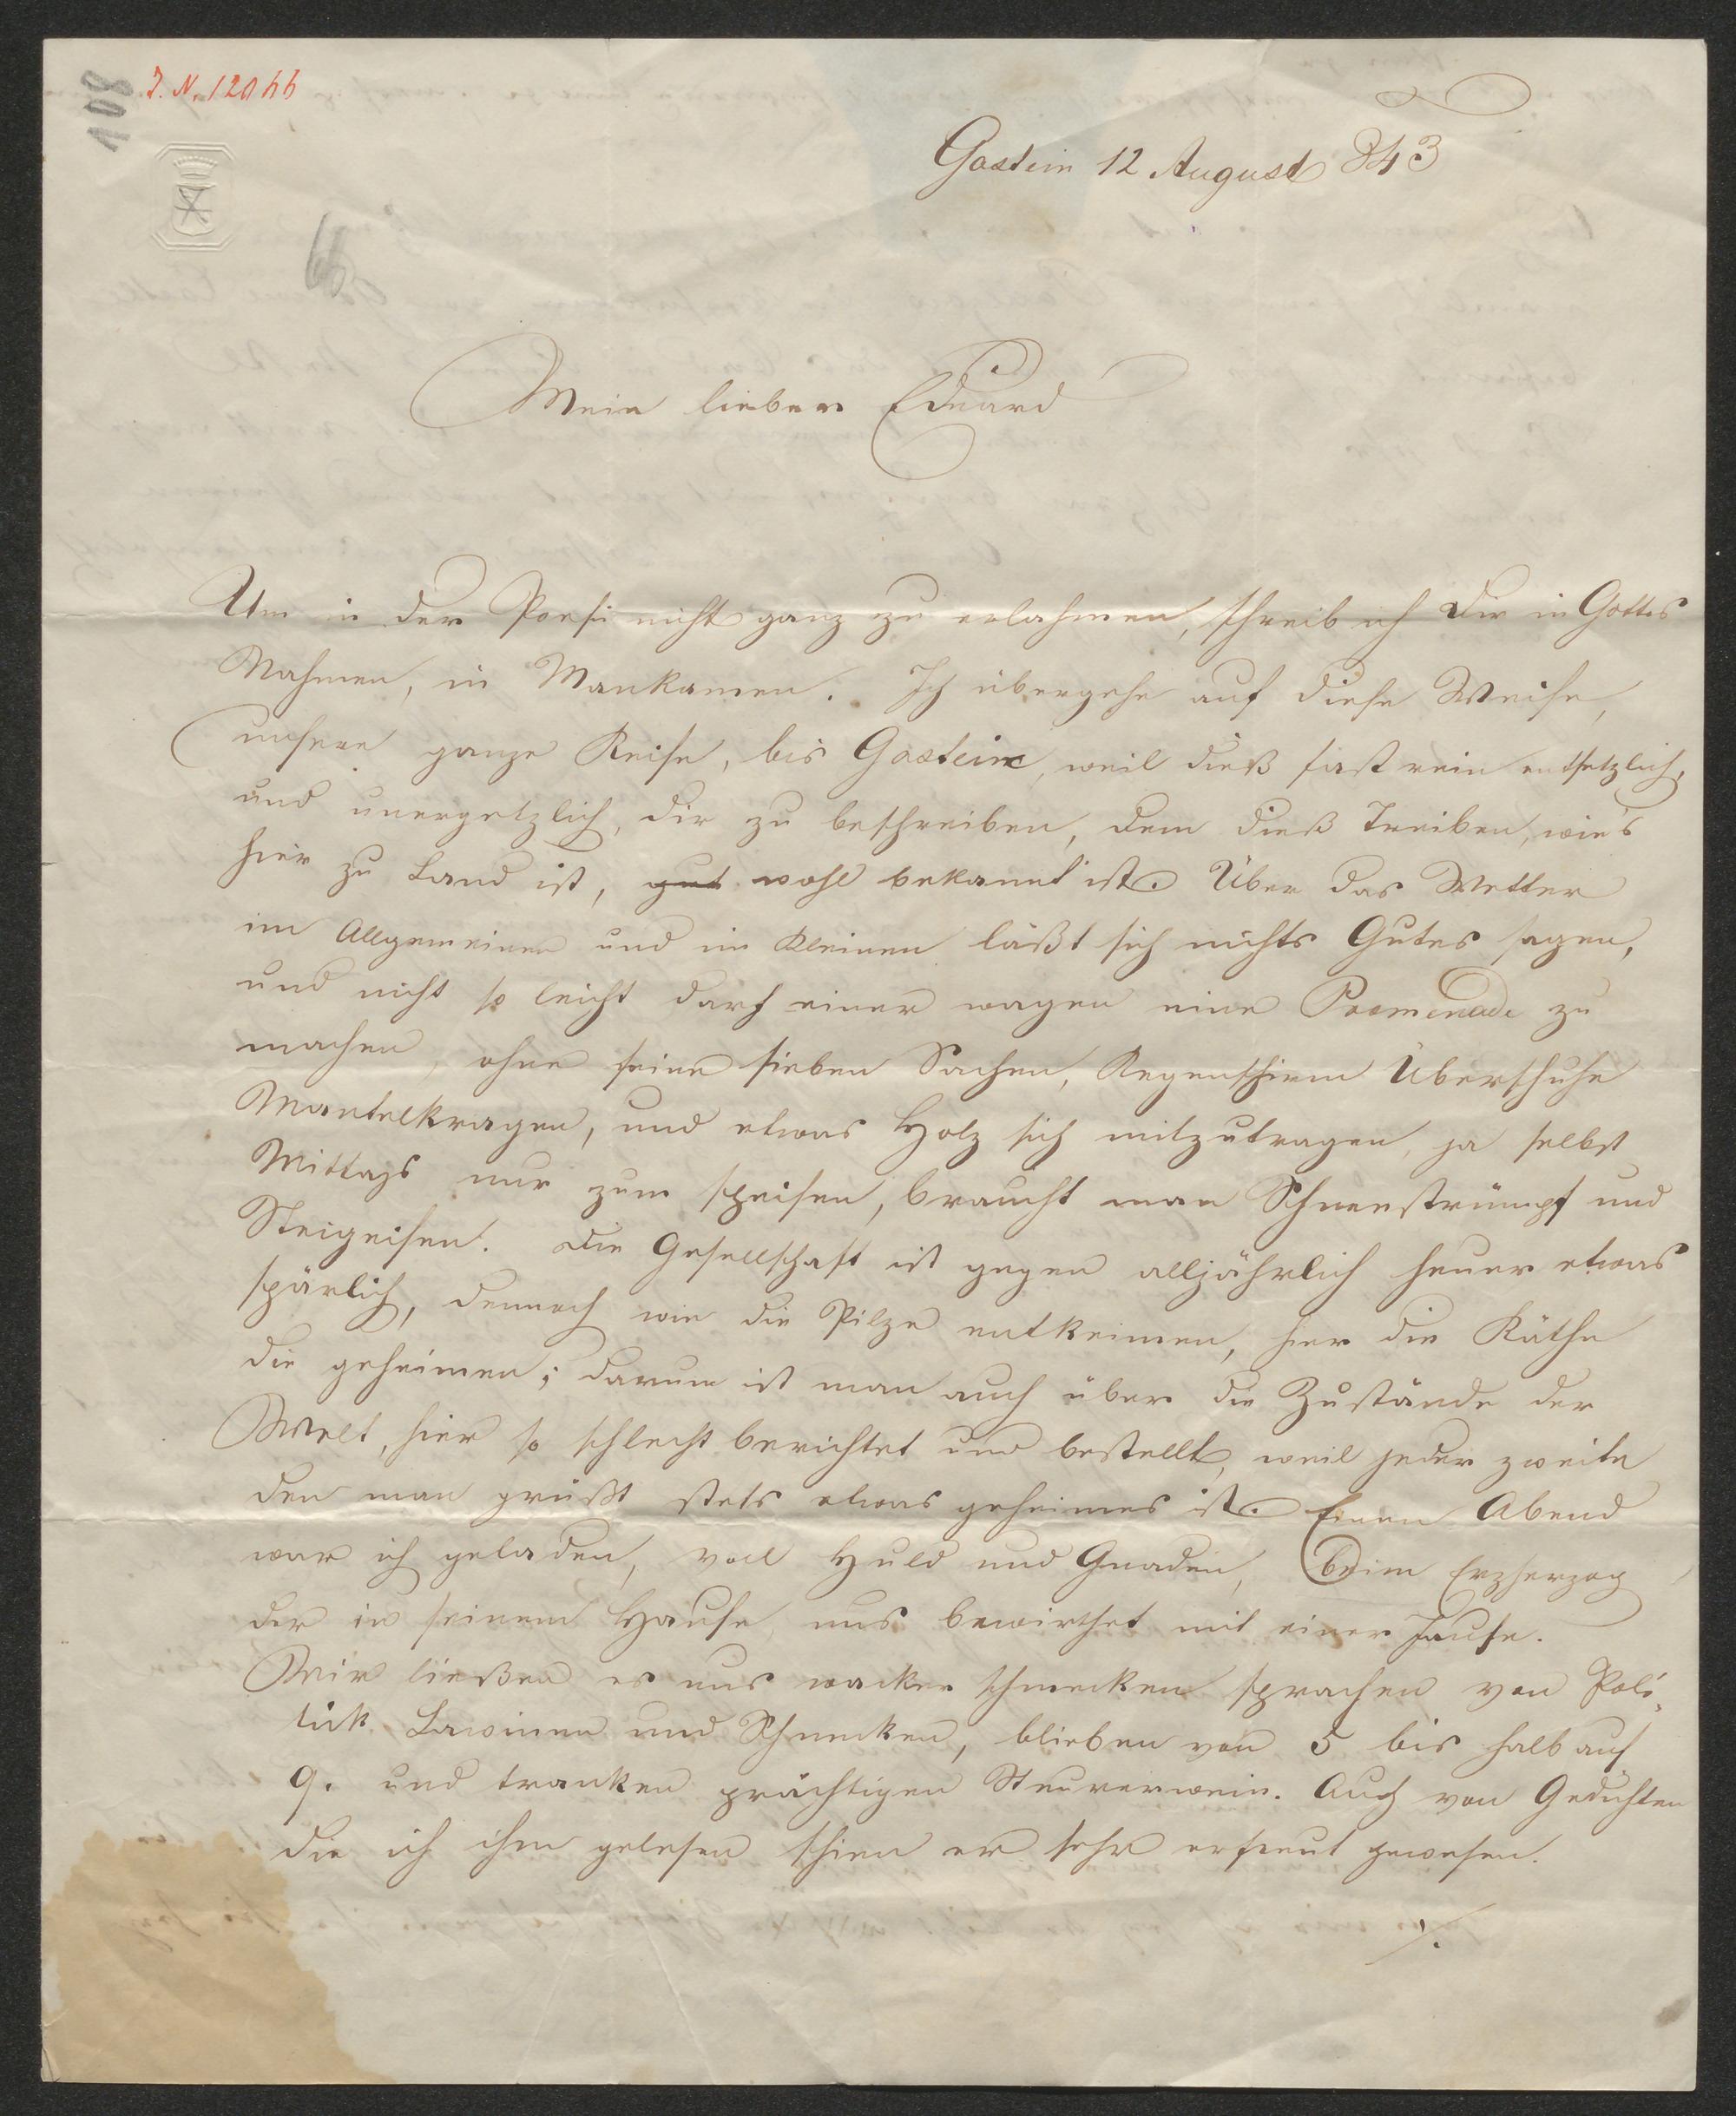 108
J. N. 12066
66
Gastein 12 August 843
Mein lieber Eduard
Um in der Poesi nicht ganz zu erlahmen, schreib ich Dir in Gottes
Nahmen, in Mankamen. Ich übergehe auf diese Weise,
unsere ganze Reise, bis Gastein, weil dieß fast rein entsetzlich,
und unergetzlich, dir zu beschreiben, dem dieß Treiben, wie's
hier zu Land ist, gut wohl bekannt ist. Über das Wetter
im Allgemeinen und im Kleinen läßt sich nichts Gutes sagen,
und nicht so leicht darf einer wagen eine Promenade zu
machen, ohne seine sieben Sachen, Regenschirm Überschuhe
Mantelkragen, und etwas Holz sich mitzutragen, ja selbst
Mittags nur zum speisen, braucht man Schneestrümpf und
Steigeisen. Die Gesellschaft ist gegen alljährlich heuer etwas
spärlich, dennoch wie die Pilze entkeimen, hier die Räthe
die geheimen; darum ist man auch über die Zustände der
Welt, hier so schlecht berichtet und bestellt, weil jeder zweite
den man grüßt stets etwas geheimes ist. Einen Abend
war ich geladen, voll Huld und Gnaden, beim Erzherzog
der in seinem Hause uns bewirthet mit einer Jause.
Wir ließen es uns wacker schmecken sprachen von Poli-
tik Lawinen und Schnecken, blieben von 5 bis halb auf
9. und tranken prächtigen Steurerwein. Auch von Gedichten
die ich ihm gelesen schien er sehr erfreut gewesen.
./.